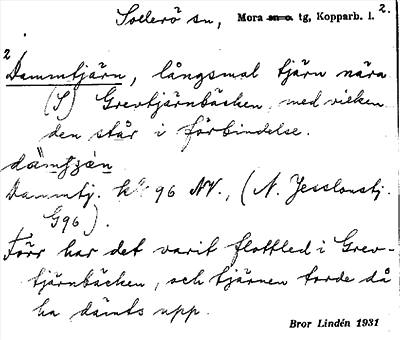 Sollerö sn, Mora sn o. tg, Kopparb. l. 2.
2
Dammtjärn, långsmal tjärn nära
(S) Grevtjärnbäcken, med vilken
den står i förbindelse.
Dammtj. k. 96 NV., (N. Jesslonstj.
G96).
Förr har det varit flottled i Grev-
tjärnbäcken, och tjärnen torde då
ha dämts upp.
Bror Lindén 1931